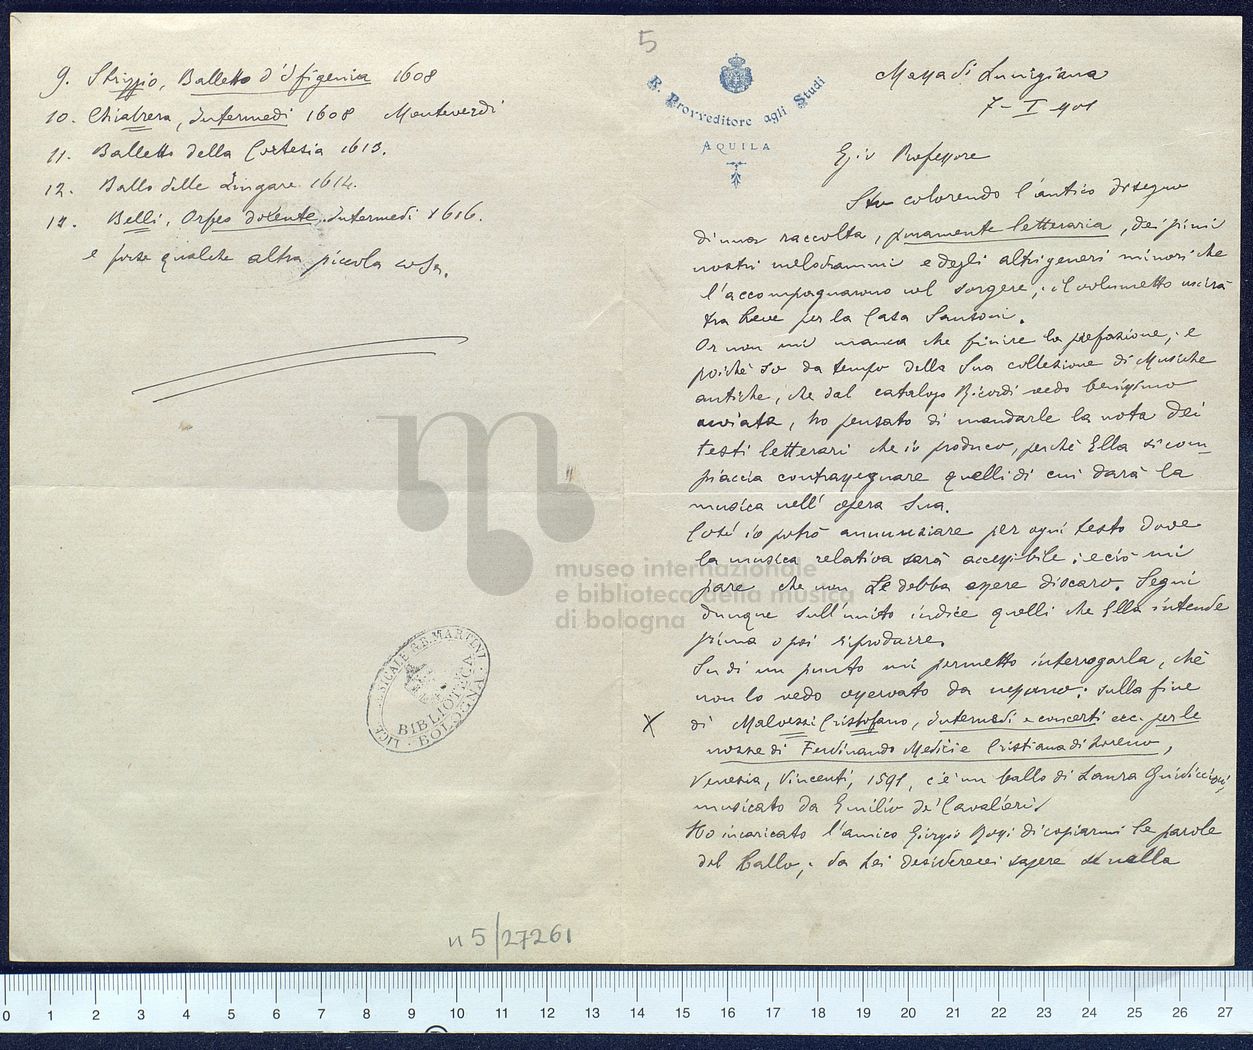 9. Striggio, Balletto d'Ifigenia 1608
10. Chiabrera, Intermedi 1608 Monteverdi
11. Balletto della Cortesia 1613.
12. Ballo delle Zingare 1614.
13. Belli, Orfeo dolente, Intermedi 1616.
e forse qualche altra piccola cosa.
LICEO MUSICALE G.B. MARTINI
BIBLIOTECA
BOLOGNA
n 5/27261
5
R. Provveditore agli Studi
AQUILA
Massa di Lunigiana
7-I-901
Egio Professore
Sto colorendo l'antico disegno
di una raccolta, puramente letteraria, dei primi
nostri melodrammi e degli altri generi minori che
l'accompagnarono nel sorgere; il volumetto uscirà
tra breve per la Casa Sansoni.
Or non mi manca che finire la prefazione; e
poiché so da tempo della Sua collezione di Musiche
antiche, che dal catalogo Ricordi vedo benissimo
avviata, ho pensato di mandarle la nota dei
testi letterari che io produco, perché Ella si com-
piaccia contrassegnare quelli di cui darà la
musica nell'opera Sua.
Così io potrò annunziare per ogni testo dove
la musica relativa sarà accessibile; e ciò mi
pare che non Le debba essere discaro. Segni
dunque sull'unito indice quelli che Ella intende
prima o poi riprodurre.
Su di un punto mi permetto interrogarla, ché
non lo vedo osservato da nessuno: sulla fine
X di Malvezzi Cristofano, Intermedi e concerti ecc. per le
nozze di Ferdinando Medici e Cristiana di Loreno,
Venezia, Vincenti, 1591, c'è un ballo di Laura Guidiccioni,
musicato da Emilio de' Cavalieri
Ho incaricato l'amico Giorgio Rossi di copiarmi le parole
del Ballo; da Lei desidererei sapere se nella
museo internazionale
e biblioteca della musica
di bologna
0 1 2 3 4 5 6 7 8 9 10 11 12 13 14 15 16 17 18 19 20 21 22 23 24 25 26 27